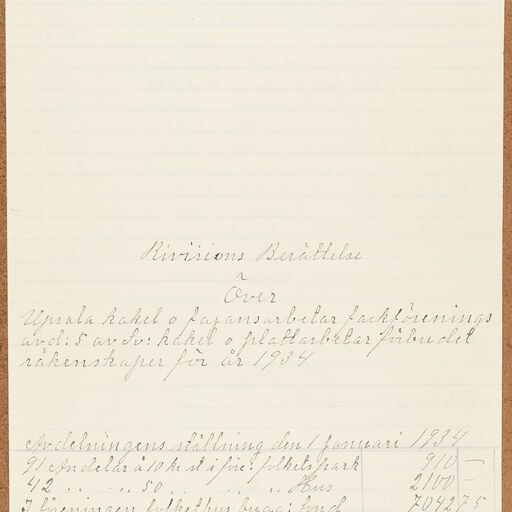 Rivisions Berättelse
Över
Upsala kakel o fajansarbetar fackförenings
avd: 5 av Sv: kakel o plattarbetar förbundet
räkenskaper för år 1934
Avdelningens ställning den 1 januari 1934
91 Andelar à 10 kr st i före: folkets park 910 —
42 " " 50 " " " Hus 2100 —
I föreningen folkethus bygg: fond 7042 75